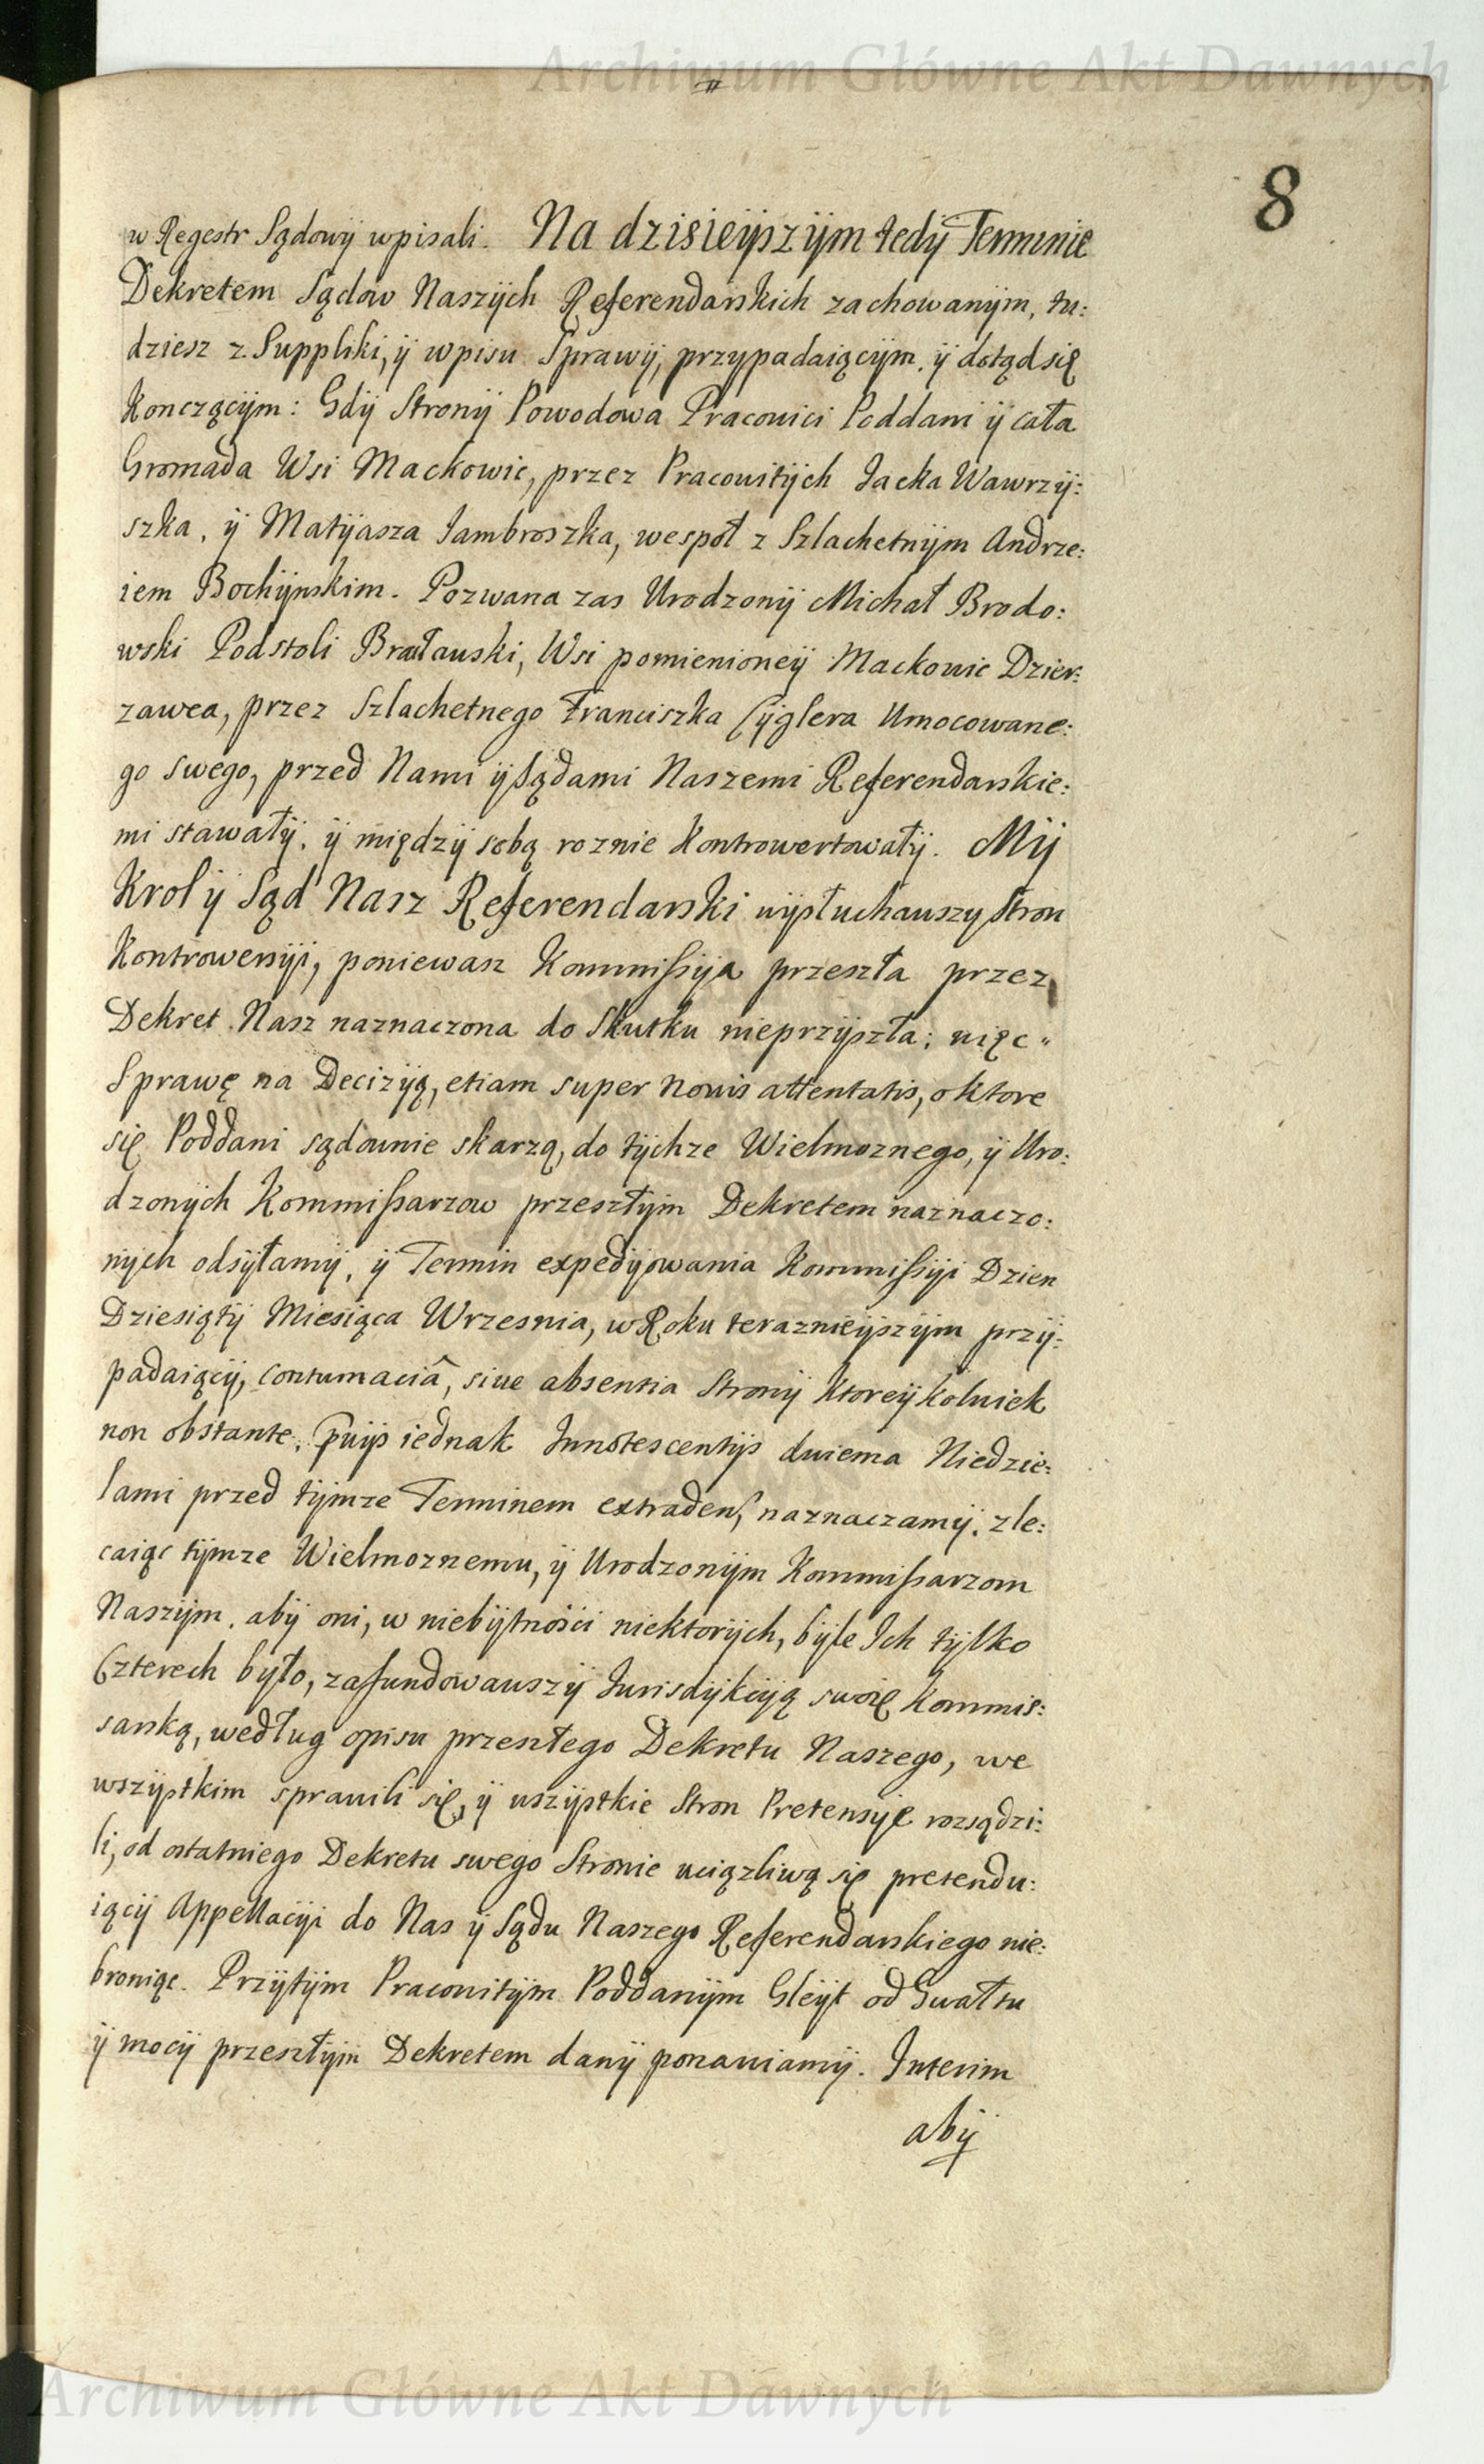 Archiwum Główne Akt Dawnych
8
w Regestr Sądowÿ wpisali. Na dzisieÿszÿm tedÿ Terminie
Dekretem Sądow Naszÿch Referendarskich zachowanÿm, tu:
dziesz z Suppliki, ÿ wpisu Sprawÿ, przypadaiącÿm, ÿ dotąd się
Konczącÿm: Gdÿ Stronÿ Powodowa Pracowici Poddani ÿ cała
Gromada Wsi Mackowic, przez Pracowitÿch Jacka Wawrzÿ:
szka, ÿ Matÿasza Jambroszka, wespoł z Szlachetnÿm Andrze:
iem Bochÿnskim. Pozwana zas Urodzonÿ Michał Brodo:
wski Podstoli Bracławski, Wsi pomienioneÿ Mackowic Dzier:
zawca, przez Szlachetnego Franciszka Cÿglera Umocowane:
go swego, przed Nami ÿ Sądami Naszemi Referendarskie:
mi stawałÿ, ÿ międzÿ sobą roznie Kontrowertowałÿ. Mÿ
Krol ÿ Sąd Nasz Referendarski wÿsłuchawszy Stron
Kontrowersÿi, poniewasz Kommissÿa przeszła przez
Dekret Nasz naznaczona do Skutku nieprzÿszła; więc
Sprawę na Decizÿą, etiam super novis attentatis, o ktore
się Poddani sądownie skarzą, do tÿchze Wielmoznego, ÿ Uro:
dzonÿch Kommissarzow przeszłÿm Dekretem naznaczo:
nÿch odsÿłamÿ, ÿ Termin expedÿowania Kommissÿi Dzien
Dziesiątÿ Miesiąca Wrzesnia, w Roku teraznieÿszÿm przÿ:
padaiącÿ, contumaciâ, sive absentia Stronÿ Ktoreÿkolwiek
non obstante, pvÿs iednak Innotescentÿs dwiema Niedzie:
lami przed tÿmze Terminem extraden, naznaczamÿ, zle:
caiąc tÿmze Wielmoznemu, ÿ Urodzonÿm Kommissarzom
Naszÿm, abÿ oni, w niebÿtnośći niektorÿch, bÿle Ich tÿlko
Czterech bÿło, zafundowawszÿ Jurisdÿkcÿą swoię Kommis:
sarską, według opisu przeszłego Dekretu Naszego, we
wszÿstkim sprawili się, ÿ wszÿstkie Stron Pretensÿe rozsądzi:
li, od ostatniego Dekretu swego Stronie uciązliwą się pretendu:
iącÿ Appellacÿi do Nas ÿ Sądu Naszego Referendarskiego nie:
broniąc. Przÿtÿm Pracowitÿm Poddanÿm Gleÿt od Gwałtu
ÿ mocÿ przeszłÿm Dekretem danÿ ponawiamÿ. Interim
abÿ
Archiwum Główne Akt Dawnych